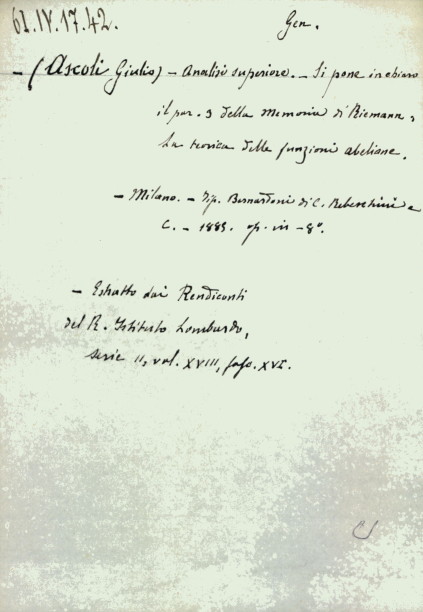 61.IV.17.42.
Gen.
– (Ascoli Giulio) – Analisi superiore. – Si pone in chiaro
il par. 3 della Memoria di Riemann,
La teorica delle funzioni abeliane.
– Milano. – Tip. Bernardoni di C. Rebeschini e
C. – 1885. op. in – 8°.
– Estratto dai Rendiconti
del R. Istituto Lombardo,
serie II, vol. XVIII, fasc. XVI.